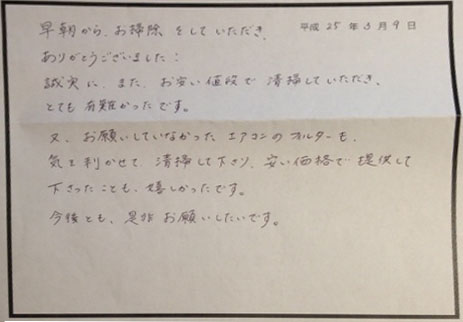 平成 25 年 3 月 9 日
早朝から、お掃除 をしていただき、
ありがとうございました!
誠実に、また、お安い値段で 清掃していただき、
とても 有難かったです。
又、お願いしていなかった エアコンの フィルターも、
気を利かせて 清掃して下さり、安い価格で 提供して
下さったことも、嬉しかったです。
今後とも、是非 お願いしたいです。